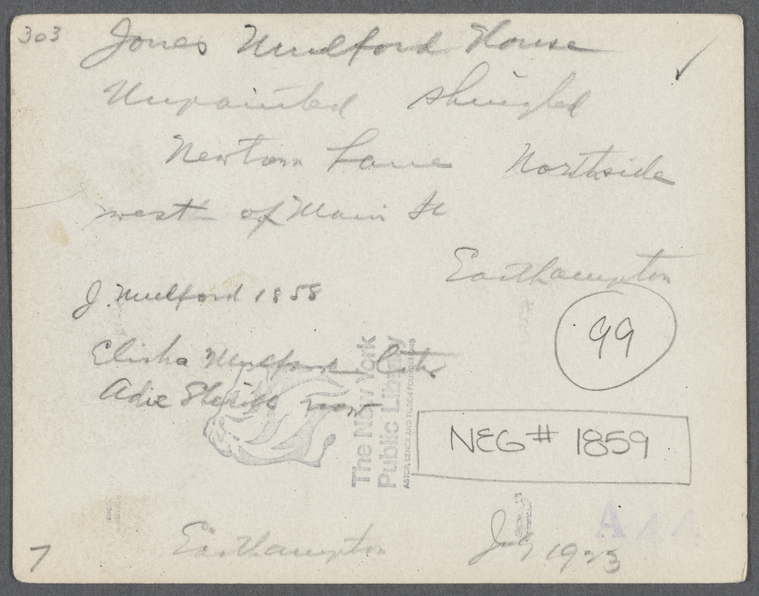 303
Jones Mulford House
Unpainted shingled
Newtown Lane Northside
west of Main St
Easthampton
J. Mulford 1858
99
Elisha Mulford
Adie now
The New York
Public Library
ASTOR, LENOX AND TILDEN FOUNDATIONS
NEG # 1859
Easthampton July 1923
7